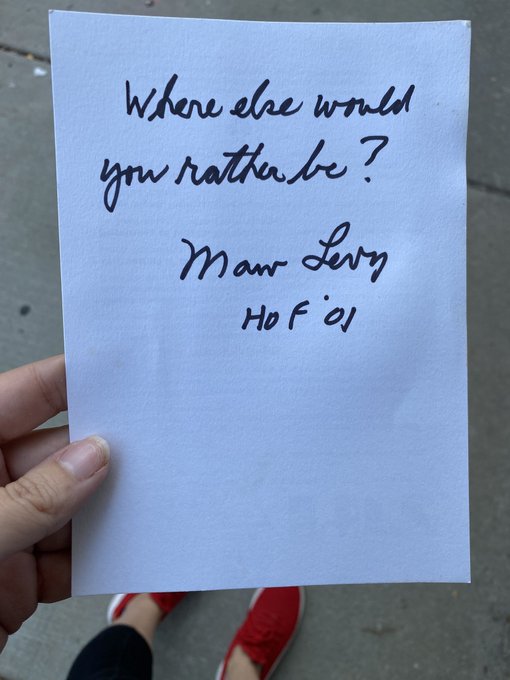 Where else would
you rather be?
Marv Levy
HOF '01